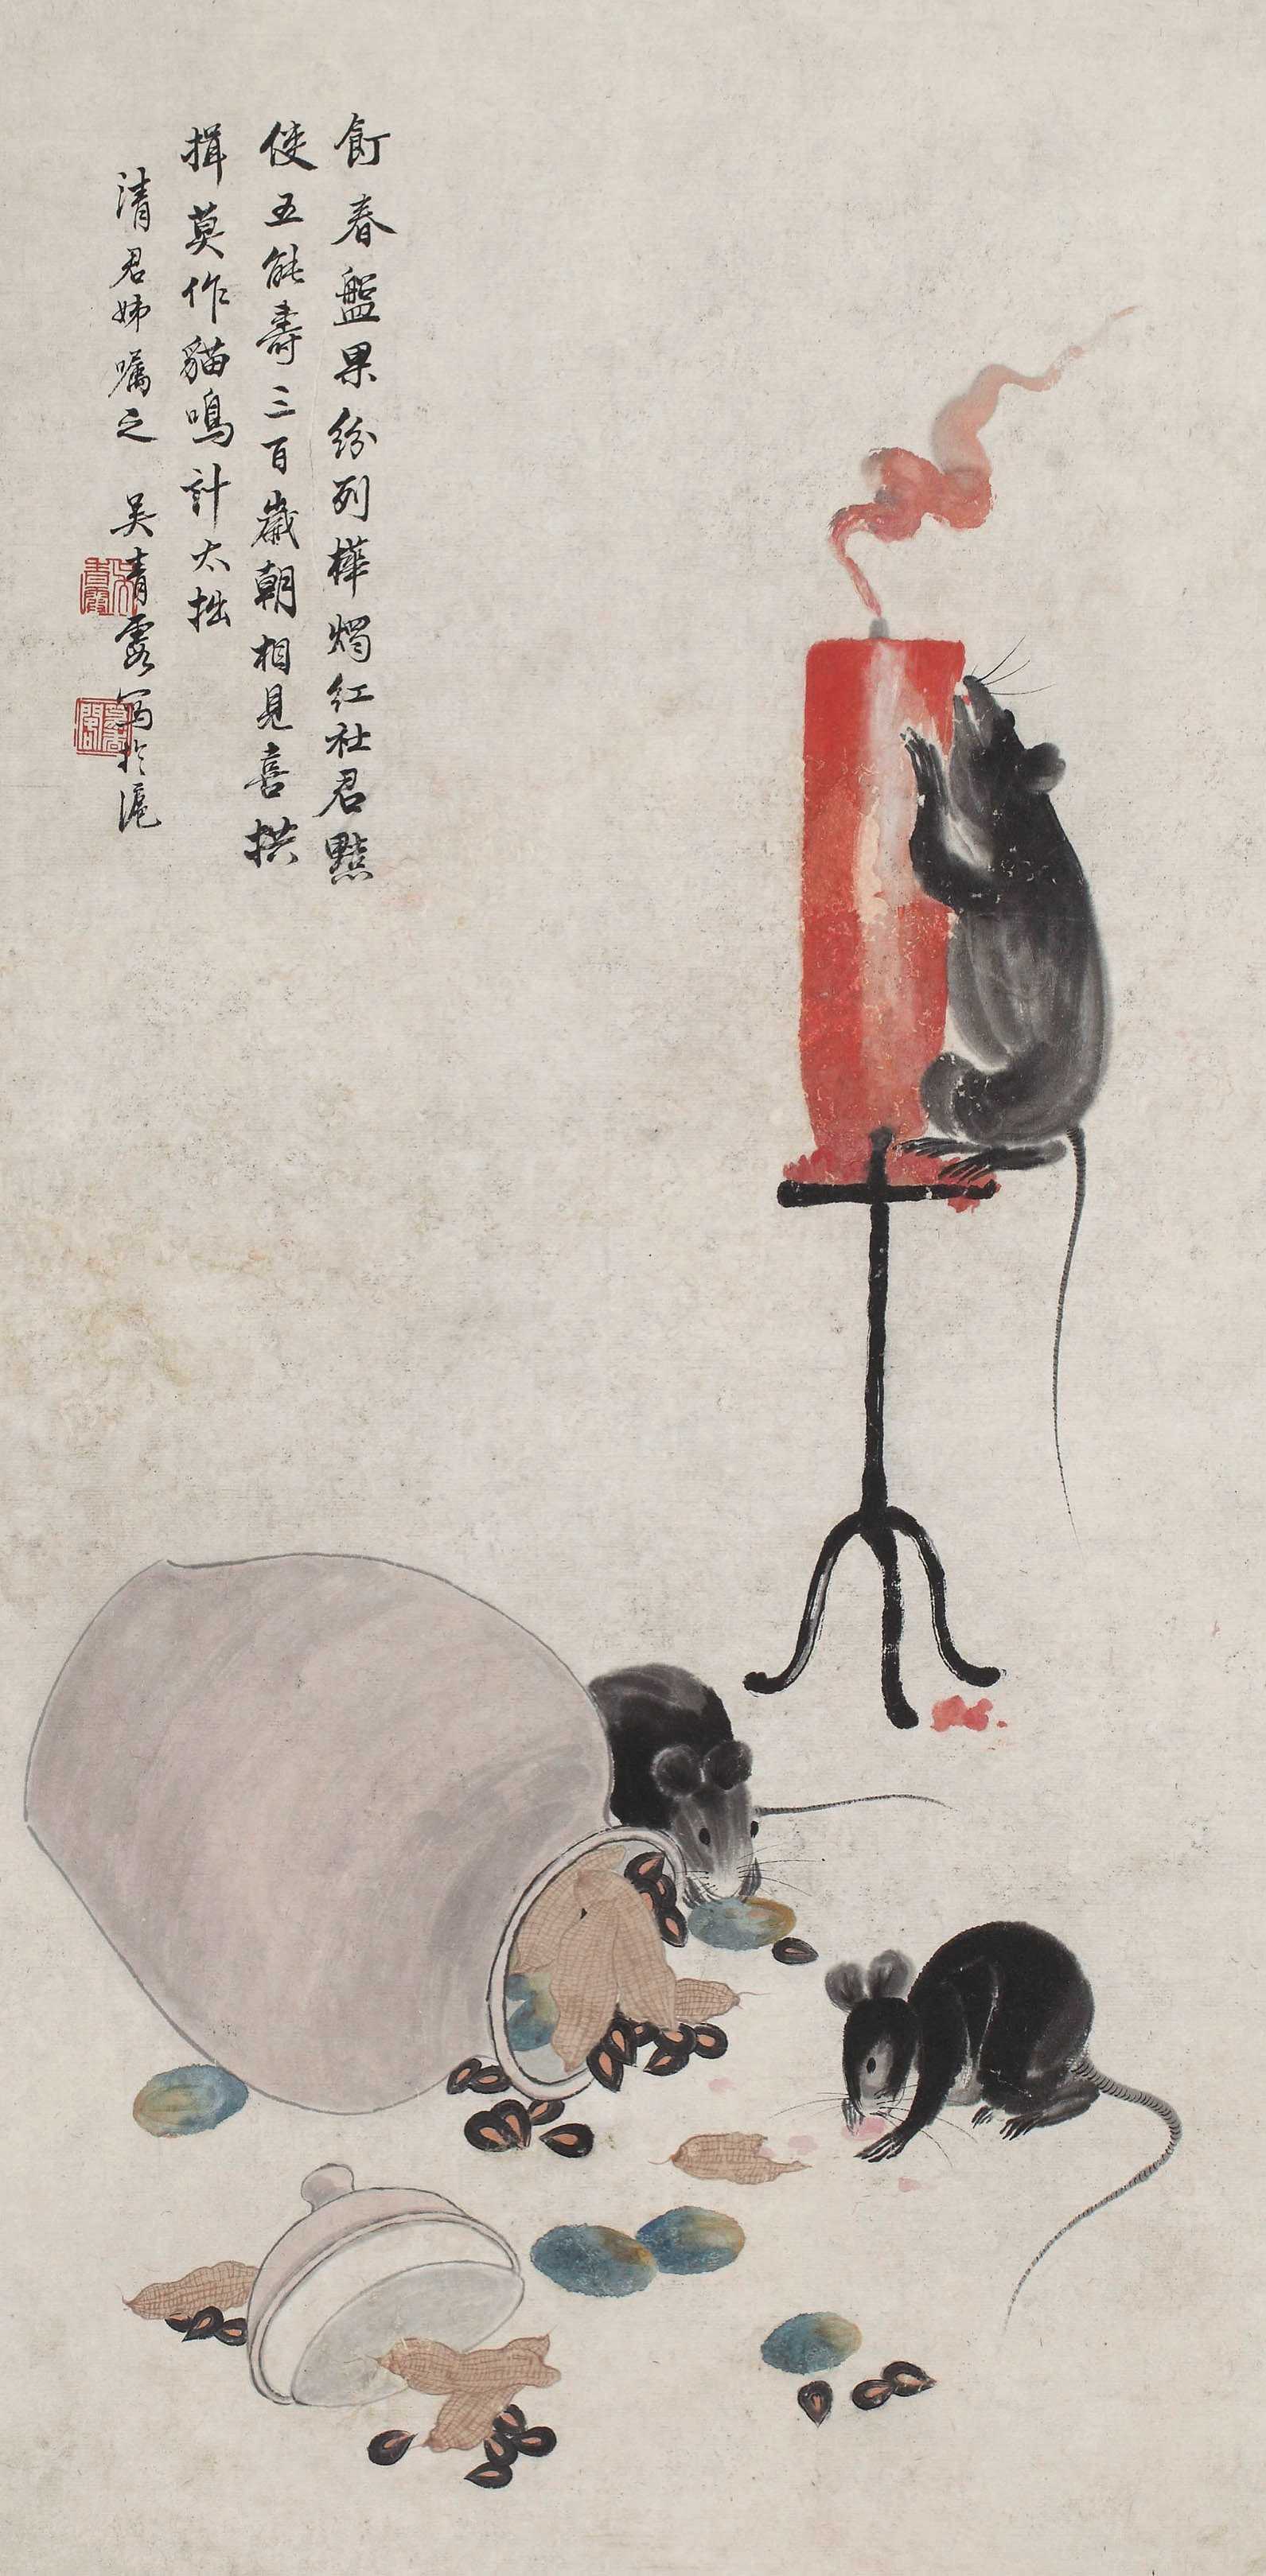 飣春盤果紛列樺燭紅社君黠
使五能壽三百歲朝相見喜拱
揖莫作貓鳴計太拙
清君姊囑之 吴青霞寫於滬
吴青霞
篆香閣